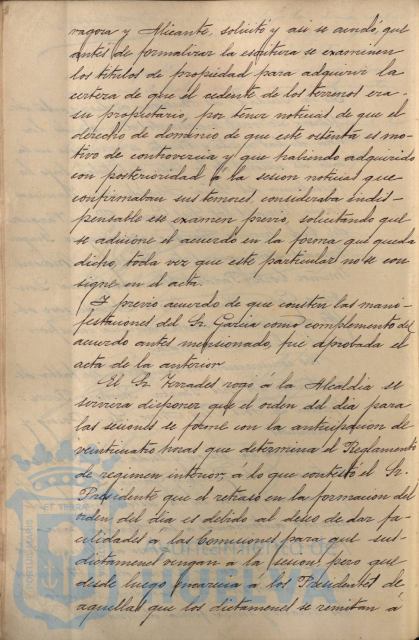 ragora y Alicante, solicitó y así se acordó, que
antes de formalizar la escritura se examinen
los titulos de propiedad para adquirir la
certeza de que el cedente de los terrenos era
su propietario, por tener noticias de que el
derecho de dominio de que este ostenta es mo-
tivo de controversia y que habiendo adquirido
con posterioridad á la sesion noticias que
confirmaban sus temores, consideraba indis-
pensable ese examen previo, solicitando que
se adicione el acuerdo en la forma que queda
dicho, toda vez que este particular no se con
signe en el acta.
Y previo acuerdo de que consten las mani-
festaciones del Sr. Garcia como complemento del
acuerdo antes mensionado, fué aprobada el
acta de la anterior
El Sr. Terrades rogó á la Alcaldia se
sirviera disponer que el orden del dia para
las sesiones se forme con la anticipacion de
veinticuatro horas que determina el Reglamento
de regimen interior, á lo que contestó el Sr.
Presidente que el retraso en la formacion del
orden del dia es debido al deseo de dar fa-
cilidades a las Comisiones para que sus
dictamenes vengan a la sesion, pero que
desde luego encarecia á los Presidentes de
aquellas que los dictamenes se remitan á
Ayuntamiento de
HUELVA
PORTUS MARIS ET TERRAE CUSTODIA